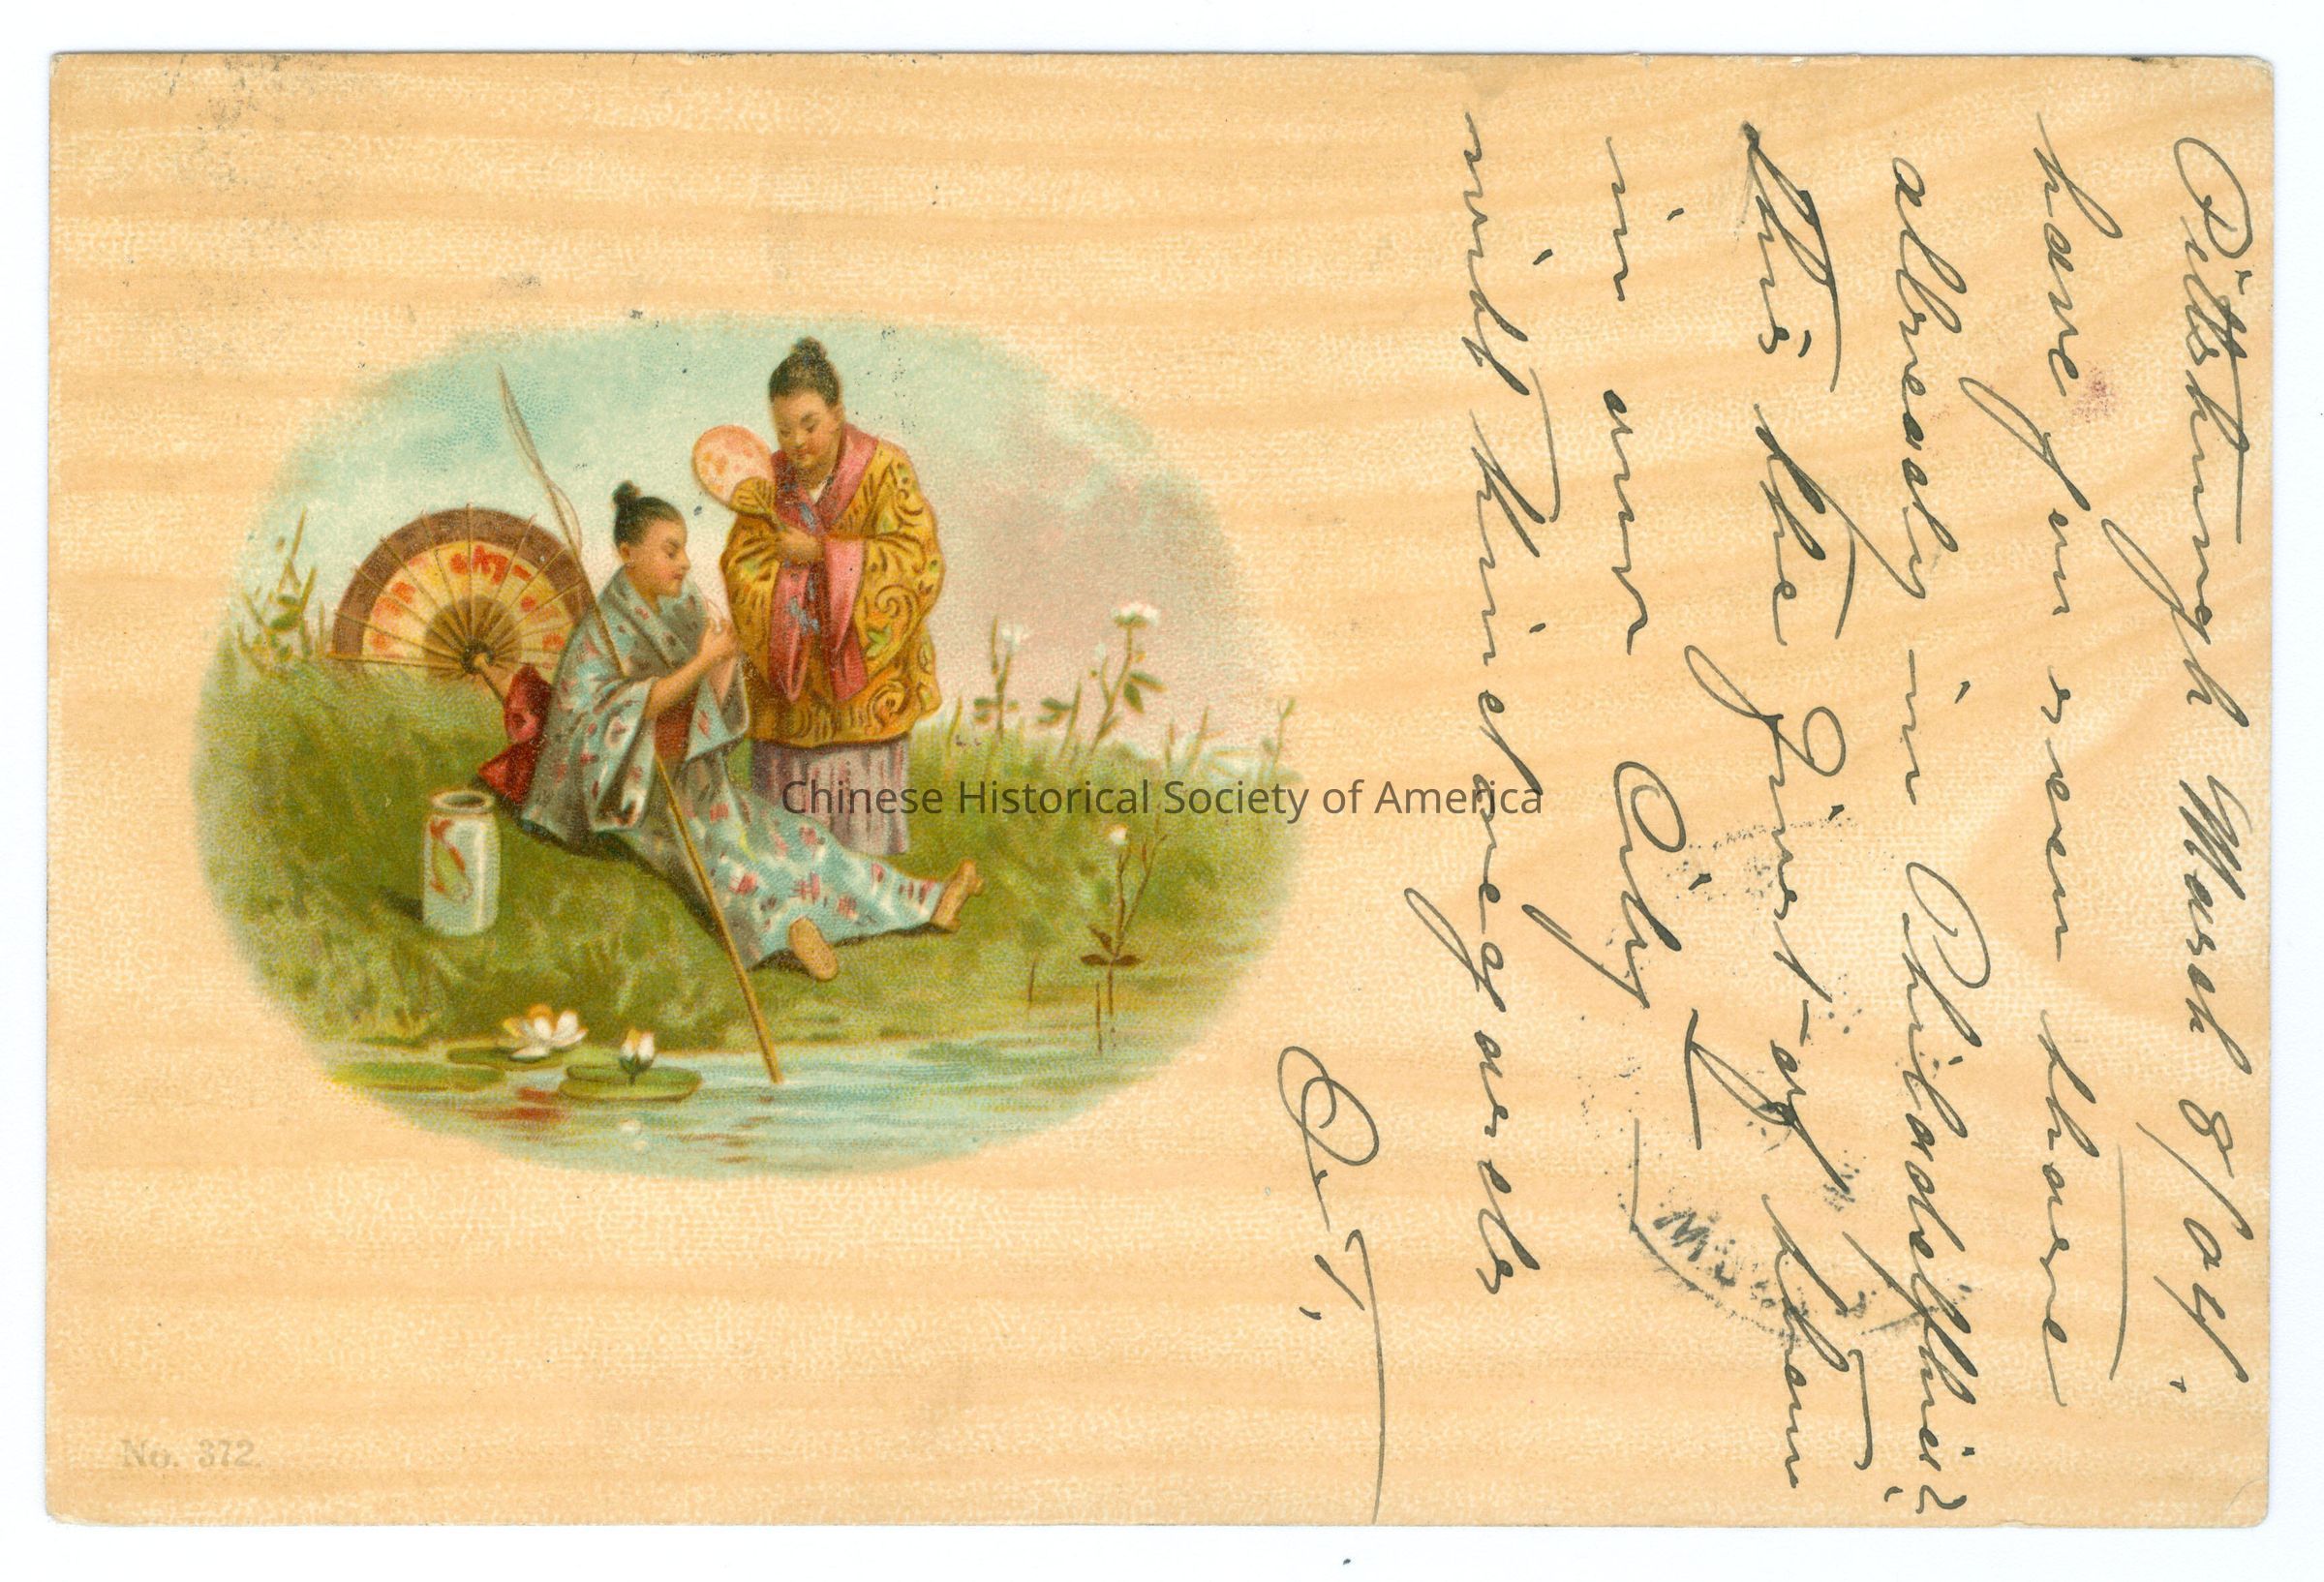 Pittsburgh March 8/04.
have you seen those
allready in Philadelphia?
this the first of them
in our City
with Kindest regards
Chinese Historical Society of America
No. 372.